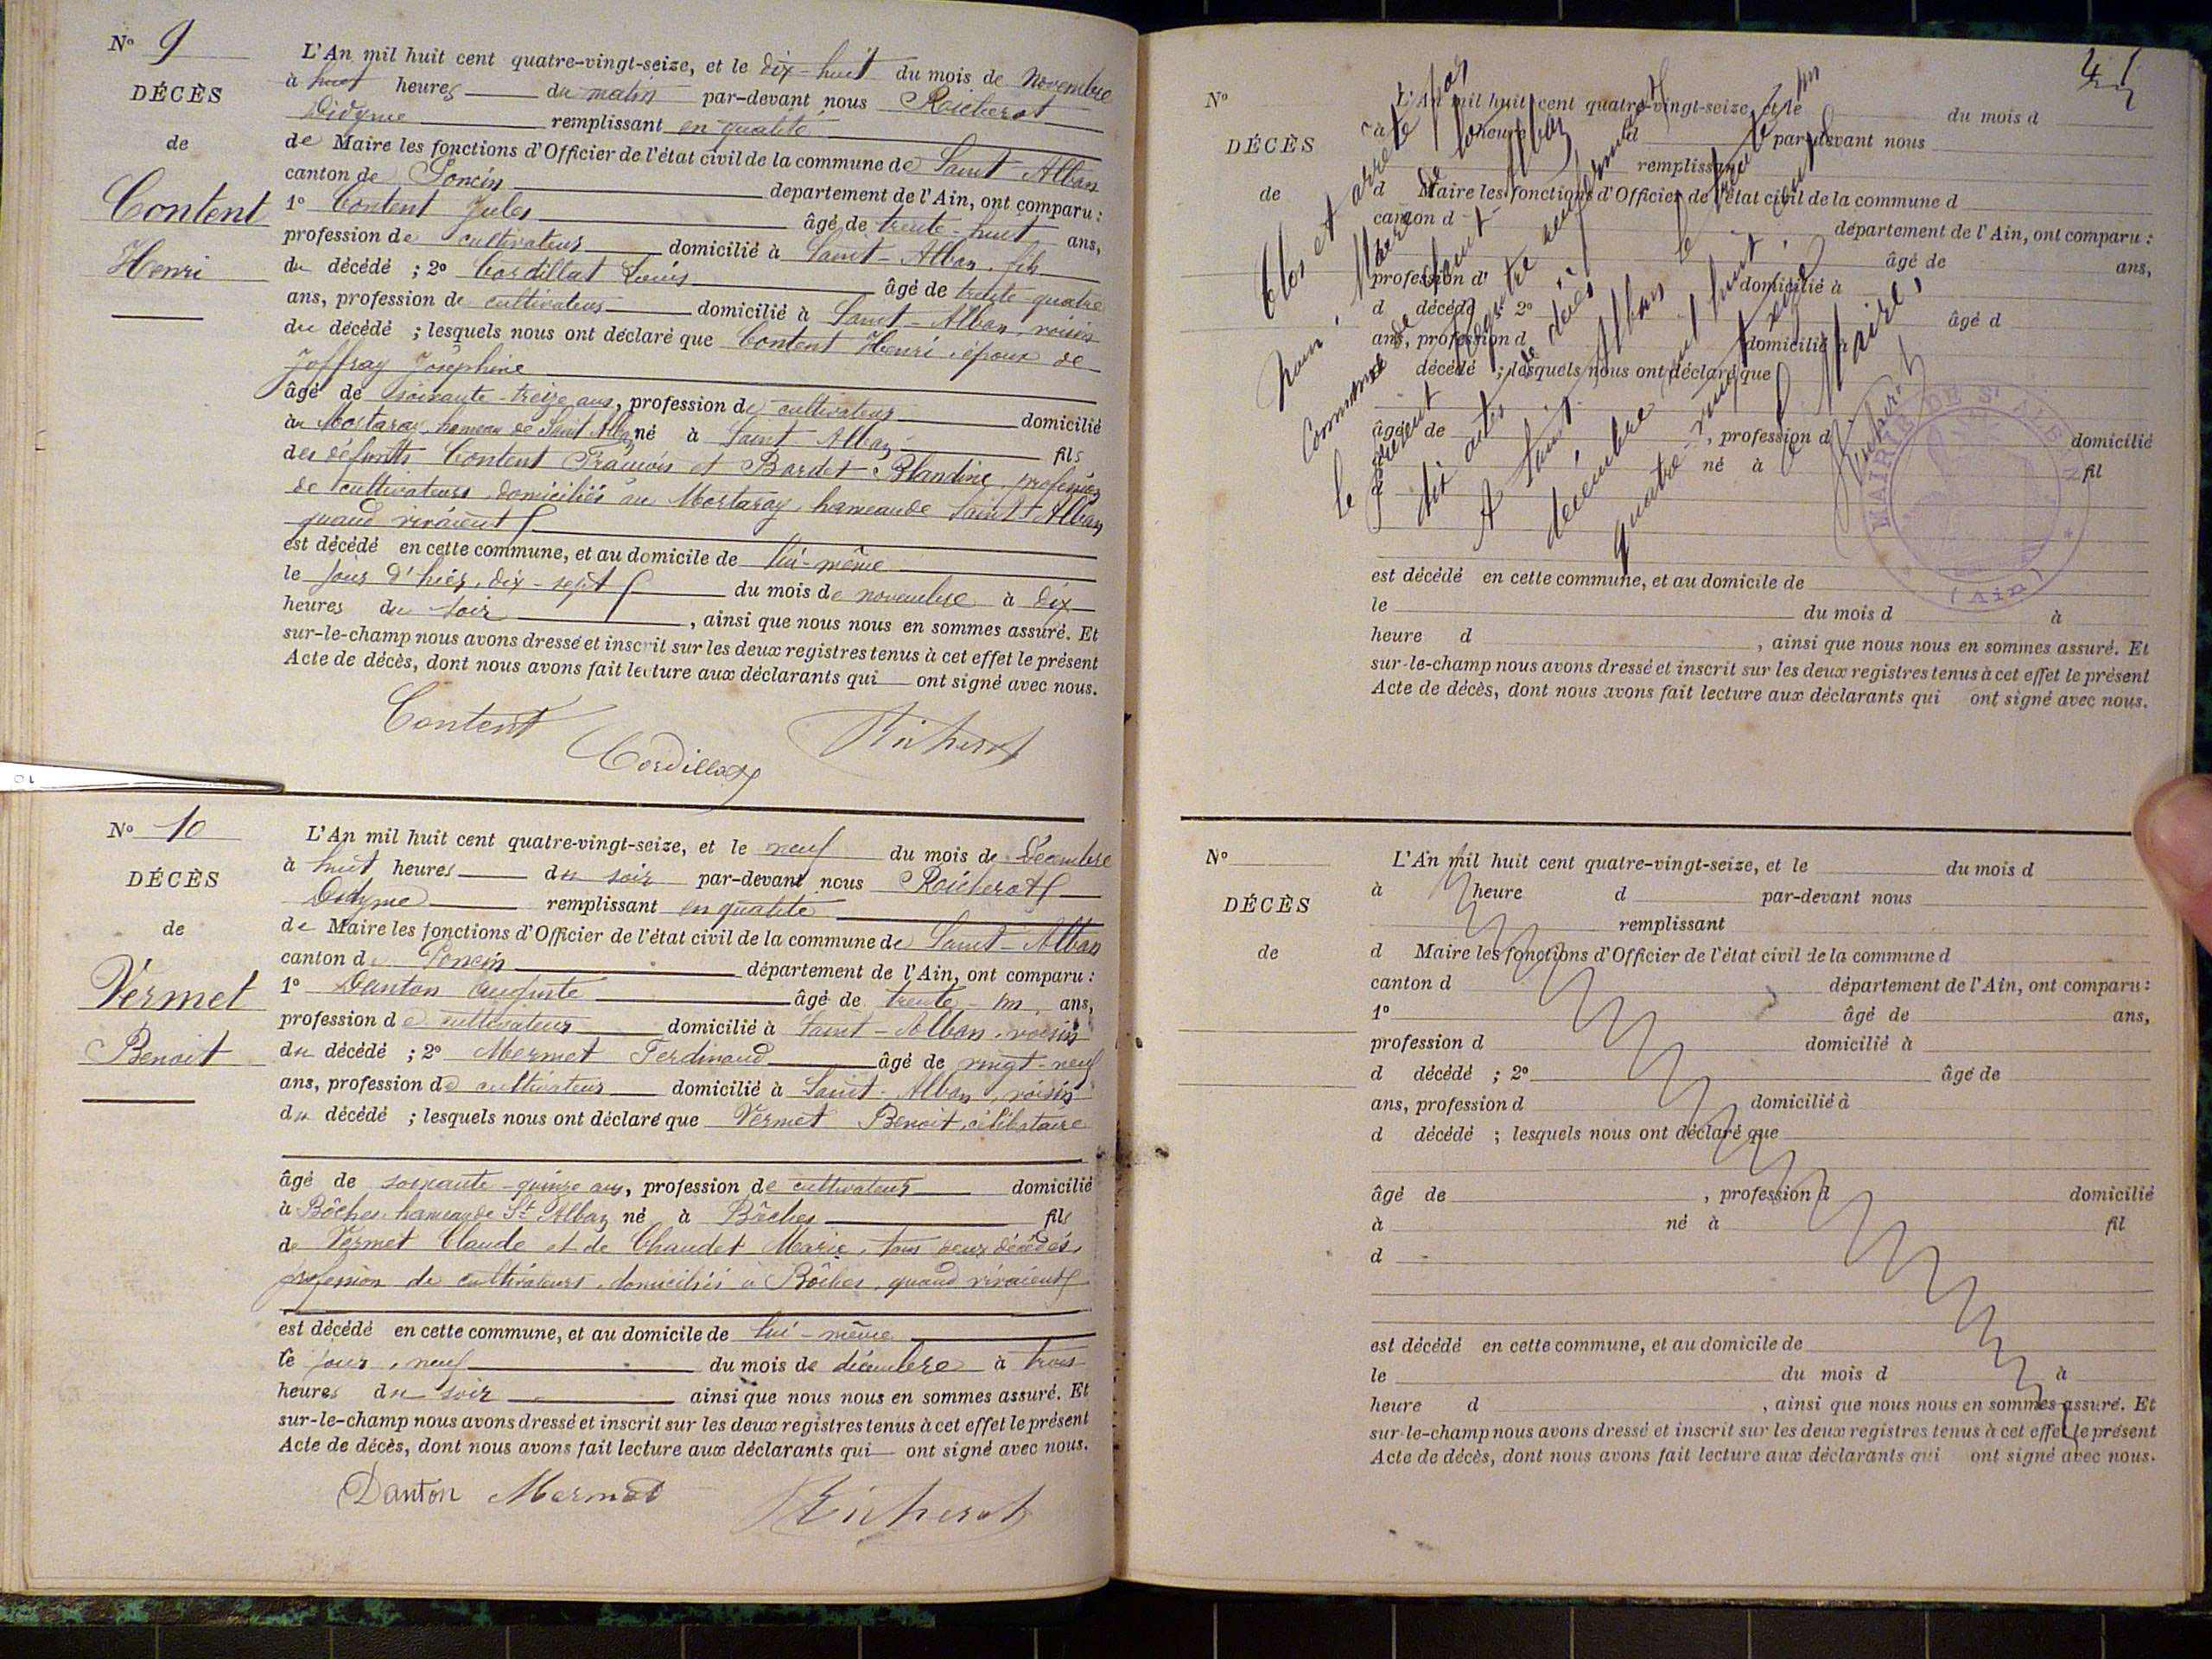 N° 9
DÉCÈS
de
Content
Henri
L'An mil huit cent quatre-vingt-seize, et le dix-huit du mois de novembre
à huit heures du matin par-devant nous Richerot
Didyme remplissant en qualité
de Maire les fonctions d'Officier de l'état civil de la commune de Saint-Alban
canton de Poncin département de l'Ain, ont comparu :
1° Content Jules âgé de trente-huit ans,
profession de cultivateur domicilié à Saint-Alban, fils
du décédé ; 2° Cordillat Louis âgé de trente-quatre
ans, profession de cultivateur domicilié à Saint-Alban, voisin
du décédé ; lesquels nous ont déclaré que Content Henri, époux de
Joffray Joséphine
âgé de soixante-treize ans, profession de cultivateur domicilié
au Mortaray, hameau de Saint Alban né à Saint Alban fils
des défunts Content François et Bordet Blandine, profession
de cultivateurs, domiciliés au Mortaray, hameau de Saint-Alban
quand vivaient
est décédé en cette commune, et au domicile de lui-même
le jour d'hier, dix-sept du mois de novembre à dix
heures du soir , ainsi que nous nous en sommes assuré. Et
sur-le-champ nous avons dressé et inscrit sur les deux registres tenus à cet effet le présent
Acte de décès, dont nous avons fait lecture aux déclarants qui ont signé avec nous.
Content
Cordillat
Richerot
N° 10
DÉCÈS
de
Vermet
Benoit
L'An mil huit cent quatre-vingt-seize, et le neuf du mois de Décembre
à huit heures du soir par-devant nous Richerot
Didyme remplissant en qualité
de Maire les fonctions d'Officier de l'état civil de la commune de Saint-Alban
canton de Poncin département de l'Ain, ont comparu :
1° Danton Auguste âgé de trente-un ans,
profession de cultivateur domicilié à Saint-Alban, voisin
du décédé ; 2° Mermet Ferdinand âgé de vingt-neuf
ans, profession de cultivateur domicilié à Saint-Alban, voisin
du décédé ; lesquels nous ont déclaré que Vermet Benoit, célibataire
âgé de soixante-quinze ans, profession de cultivateur domicilié
à Bôches hameau de St Alban né à Bôches fils
de Vermet Claude et de Chaudet Marie, tous deux décédés,
profession de cultivateurs, domiciliés à Bôches, quand vivaient
est décédé en cette commune, et au domicile de lui-même
le jour, neuf du mois de décembre à trois
heures du soir ainsi que nous nous en sommes assuré. Et
sur-le-champ nous avons dressé et inscrit sur les deux registres tenus à cet effet le présent
Acte de décès, dont nous avons fait lecture aux déclarants qui ont signé avec nous.
Danton Mermet Richerot
N°
DÉCÈS
de
L'An mil huit cent quatre-vingt-seize, et le du mois d
à heure d par-devant nous
remplissant
d Maire les fonctions d'Officier de l'état civil de la commune d
canton d département de l'Ain, ont comparu :
âgé de ans,
profession d domicilié à
d décédé ; 2° âgé d
ans, profession d domicilié à
décédé ; lesquels nous ont déclaré que
âgé de , profession d domicilié
né à fil
est décédé en cette commune, et au domicile de
le du mois d à
heure d , ainsi que nous nous en sommes assuré. Et
sur-le-champ nous avons dressé et inscrit sur les deux registres tenus à cet effet le présent
Acte de décès, dont nous avons fait lecture aux déclarants qui ont signé avec nous.
Clos et arrêté par
nous, Maire de la
Commune de Saint-Alban
le présent registre renfermant
dix actes de décès.
A Saint Alban le trente un
décembre mil huit cent
quatre-vingt seize
Le Maire,
Richerot
MAIRIE DE ST ALBAN
(Ain)
N°
DÉCÈS
de
L'An mil huit cent quatre-vingt-seize, et le du mois d
à heure d par-devant nous
remplissant
d Maire les fonctions d'Officier de l'état civil de la commune d
canton d département de l'Ain, ont comparu :
1° âgé de ans,
profession d domicilié à
d décédé ; 2° âgé de
ans, profession d domicilié à
d décédé ; lesquels nous ont déclaré que
âgé de , profession d domicilié
à né à fil
d
est décédé en cette commune, et au domicile de
le du mois d à
heure d , ainsi que nous nous en sommes assuré. Et
sur-le-champ nous avons dressé et inscrit sur les deux registres tenus à cet effet le présent
Acte de décès, dont nous avons fait lecture aux déclarants qui ont signé avec nous.